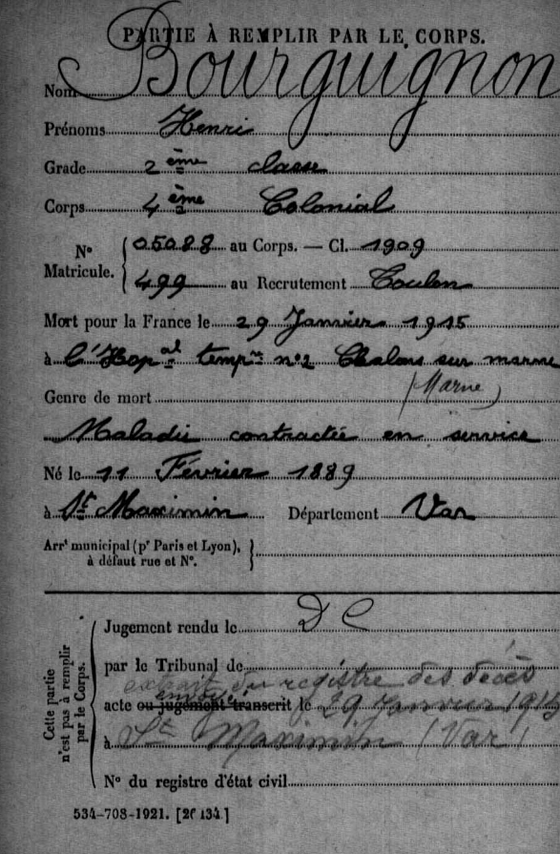 PARTIE À REMPLIR PAR LE CORPS.
Nom Bourguignon
Prénoms Henri
Grade 2ème classe
Corps 4ème Colonial
N° Matricule. { 05088 au Corps. — Cl. 1909
499 au Recrutement Toulon
Mort pour la France le 29 Janvier 1915
à l'Hopal tempre n°2 Chalons sur marne
(Marne)
Genre de mort
Maladie contractée en service
Né le 11 Février 1889
à St Maximin Département Var
Arrt municipal (pr Paris et Lyon), à défaut rue et N°. }
Cette partie n'est pas à remplir par le Corps.
Jugement rendu le D C
par le Tribunal de
extrait du registre des décès
envoyé
acte ou jugement transcrit le 29 Janvier 1915
à St Maximin (Var)
N° du registre d'état civil
534-708-1921. [26134.]